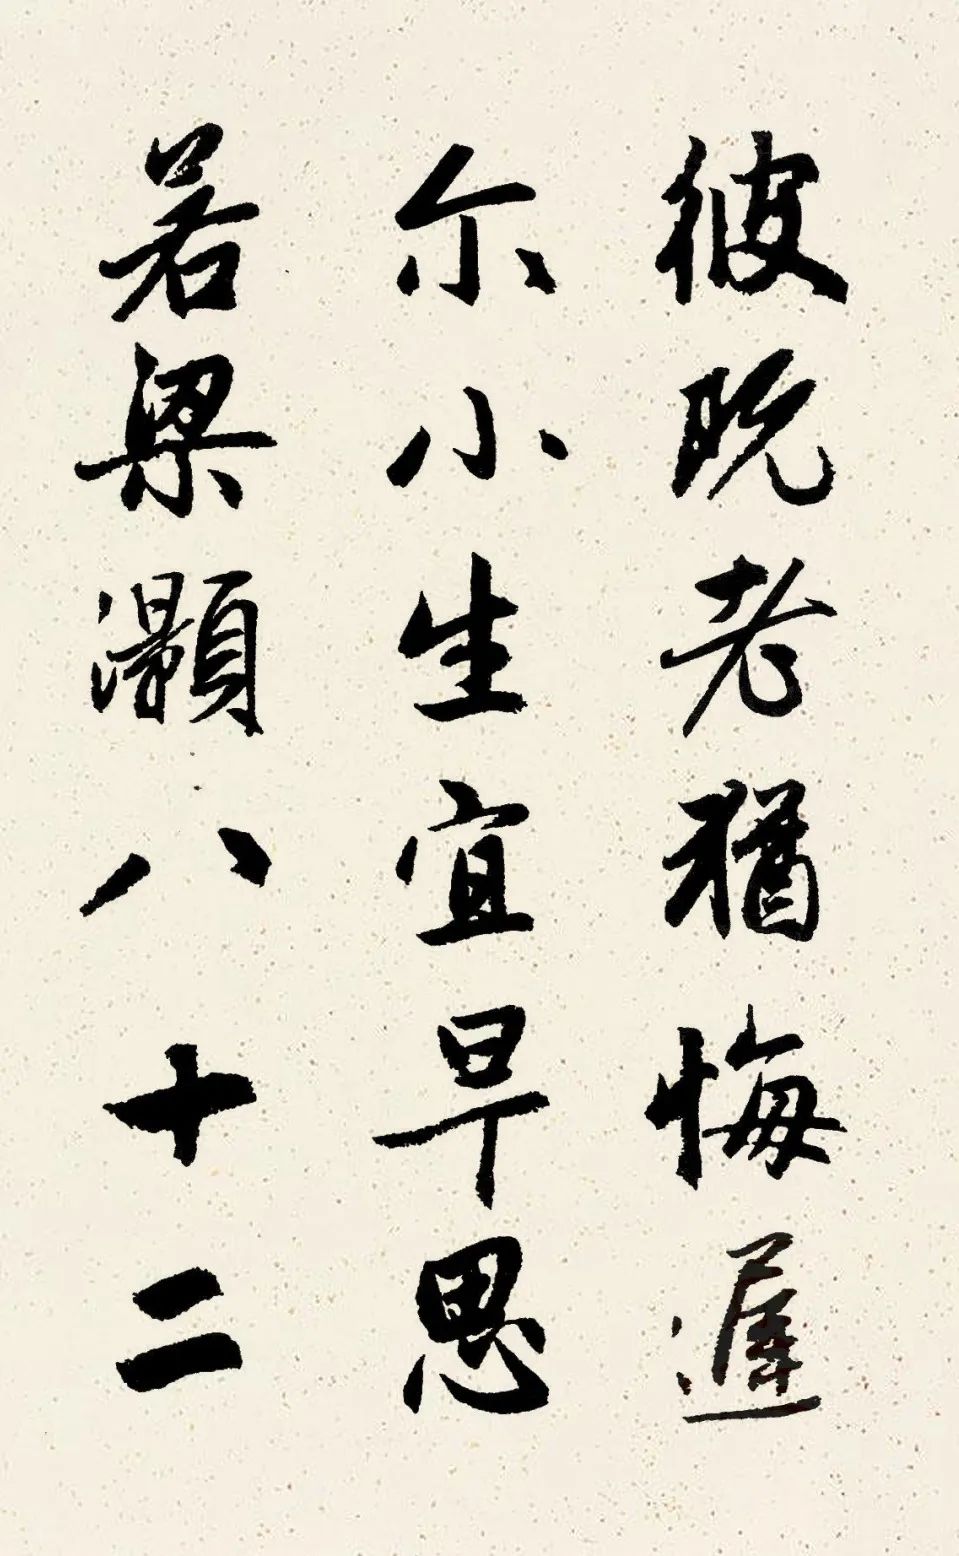 彼既老猶悔遲
尔小生宜早思
若梁灝八十二